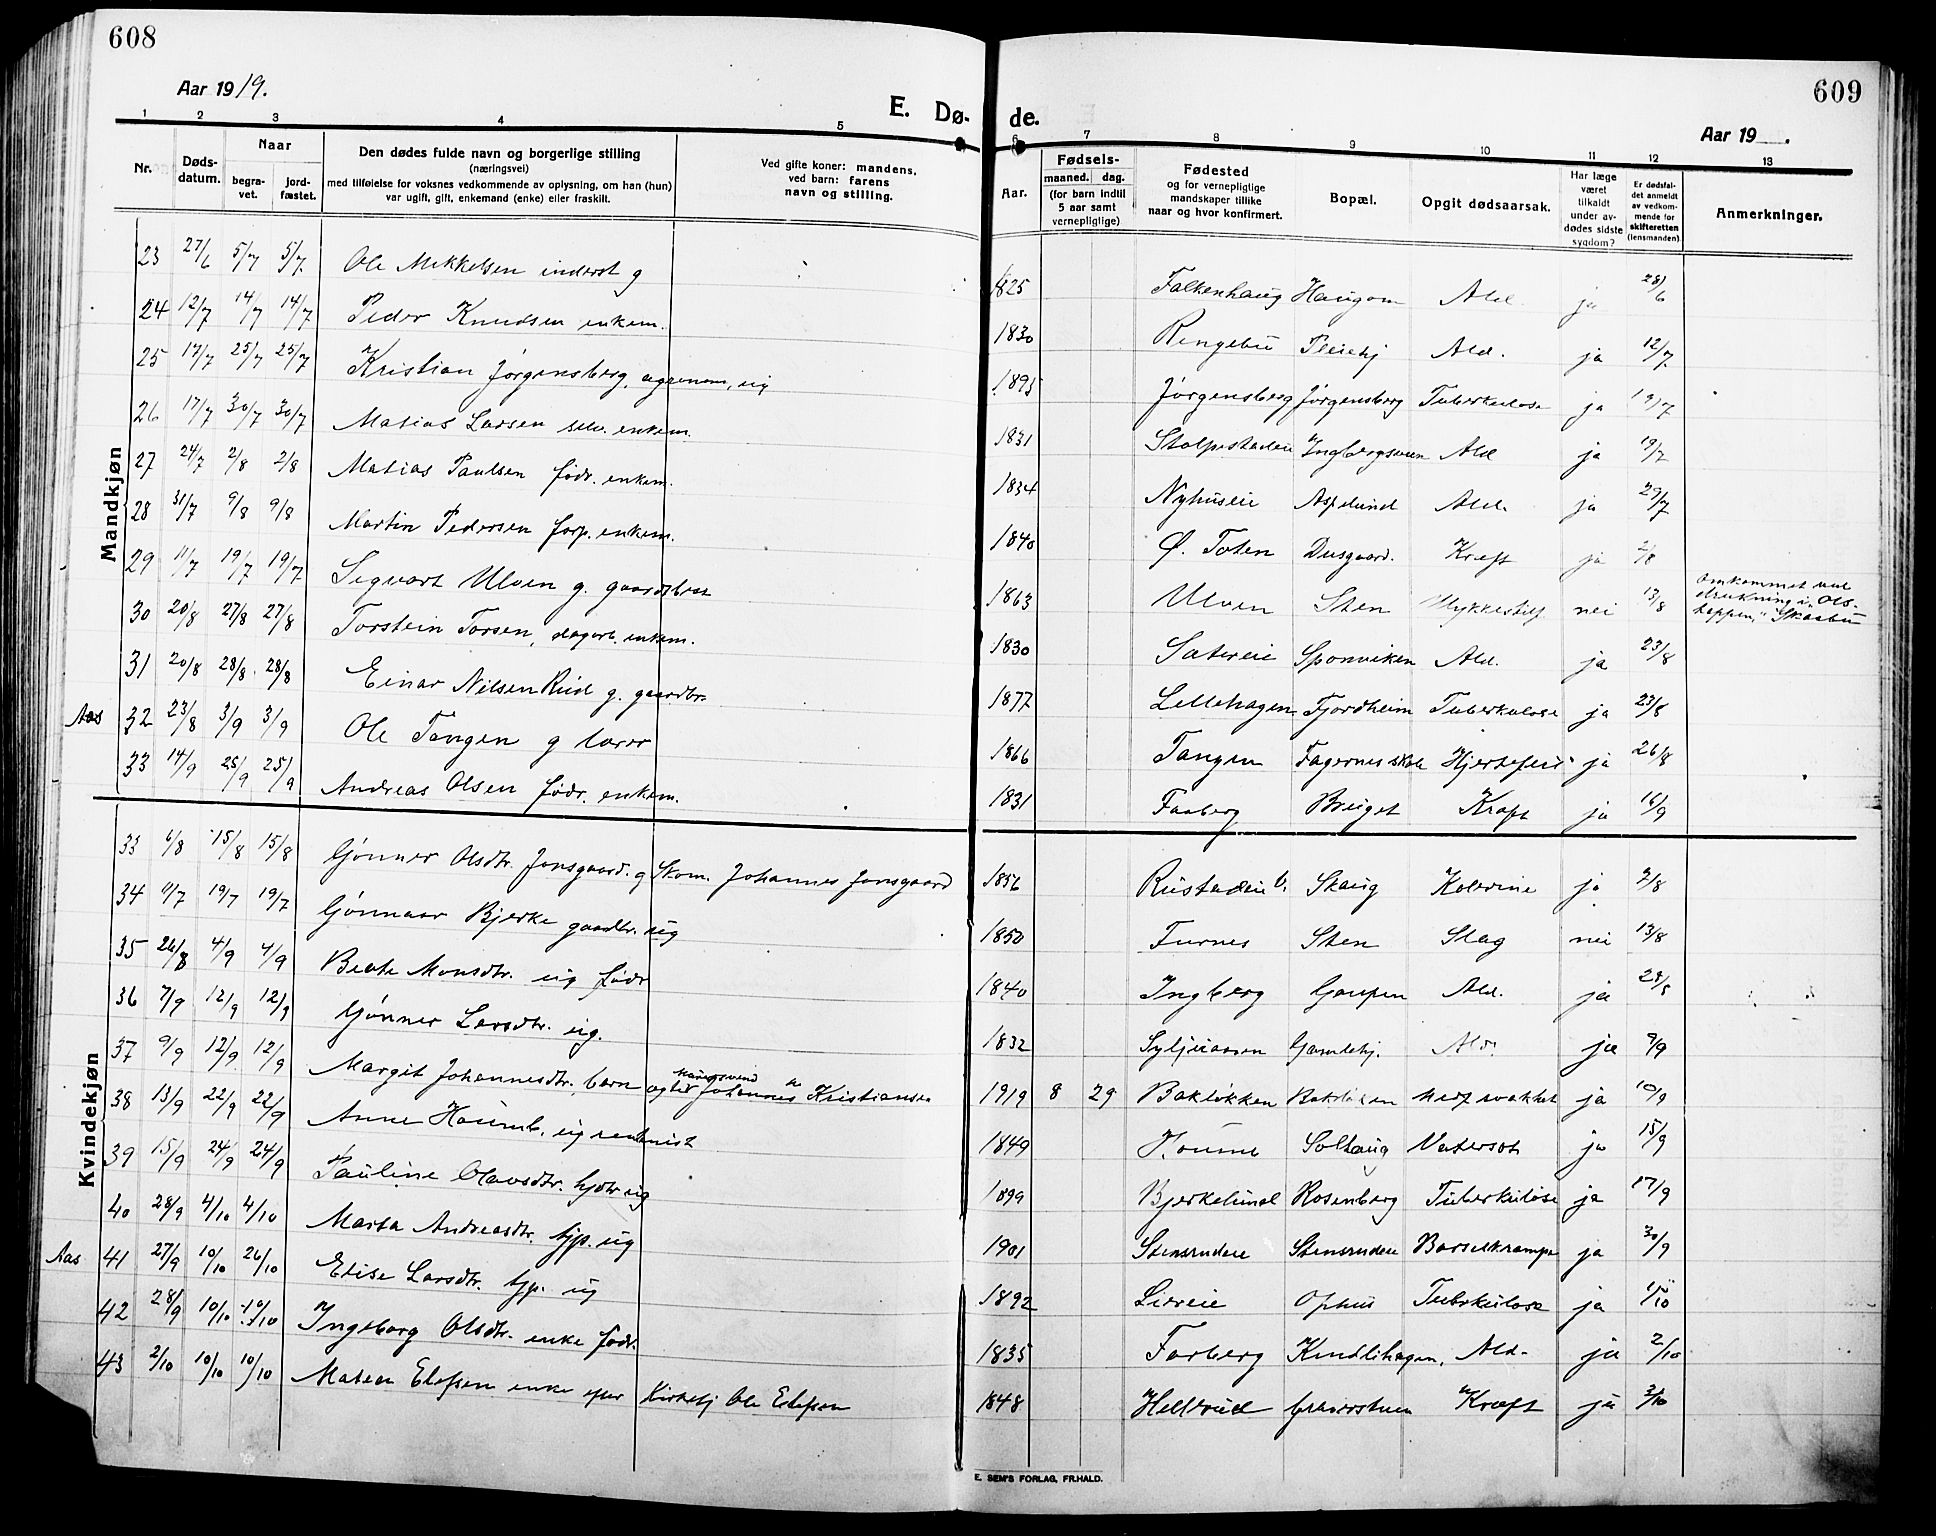 608
609
Aar 1919.
E. Dø-
de.
Aar 19 .
1 2 3 4 5 6 7 8 9 10 11 12 13
Nr.
Døds-
datum.
Naar
begra-
vet.
jord-
fæstet.
Den dødes fulde navn og borgerlige stilling
(næringsvei)
med tilføielse for voksnes vedkommende av oplysning, om han (hun)
var ugift, gift, enkemand (enke) eller fraskilt.
Ved gifte koner: mandens,
ved barn: farens
navn og stilling.
Aar.
Fødsels-
maaned. dag.
(for barn indtil
5 aar samt
vernepligtige)
Fødested
og for vernepligtige
mandskaper tillike
naar og hvor konfirmert.
Bopæl.
Opgit dødsaarsak.
Har læge
været
tilkaldt
under av-
dødes sidste
sygdom?
Er dødsfal-
det anmeldt
av vedkom-
mende for
skifteretten
(lensmanden)
Anmerkninger.
Mandkjøn
23 27/6 5/7 5/7 Ole Mikkelsen inderst g 1825 Falkenhaug Haugom Ald. ja 28/6
24 12/7 14/7 14/7 Peder Knudsen enkem. 1830 Ringebu Pleiehj Ald. ja 12/7
25 17/7 25/7 25/7 Kristian Jørgensberg, agronom, ug 1895 Jørgensberg Jørgensberg Tuberkulose ja 19/7
26 17/7 30/7 30/7 Matias Larsen selv. enkem. 1831 Ald ja 19/7
27 24/7 2/8 2/8 Matias Paulsen fødr. enkem. 1834 Nyhuseie Aspelund Ald. ja 29/7
28 31/7 9/8 9/8 Martin Pedersen forp. enkem. 1840 Ø. Toten Dusgaard. Kræft ja 2/8
29 11/7 19/7 19/7 Sigvart Ulven g. gaardbr 1863 Ulven Sten Ulykkestilf nei 13/8 omkommet ved drukning i "Ols-
30 20/8 27/8 27/8 Torstein Torsen, dagarb. enkem. 1830 Sætereie Sponviken Ald. ja 23/8
31 20/8 28/8 28/8 Einar Nilsen Rud g. gaardbr. 1877 Lillehagen Fjordheim Tuberkulose ja 23/8
Aas 32 23/8 3/9 3/9 Ole Tangen g lærer 1866 Tangen Fagernes skole Hjertefeil ja 26/8
33 14/9 25/9 25/9 Andreas Olsen fødr. enkem. 1831 Faaberg Kræft ja 16/9
Kvindekjøn
33 6/8 15/8 15/8 Gønner Olsdtr. Jonsgaard. g Skom. Johannes Jonsgaard 1856 Skaug Kolerine ja 7/8
34 11/7 19/7 19/7 Gønnaar Bjerke gaardbr. ug 1850 Furnes Sten Slag nei 13/8
35 26/8 4/9 4/9 Beate Monsdtr. ug fødr 1840 Ingberg Gaupen Ald. ja
36 7/9 12/9 12/9 Gønner Larsdtr. ug. 1832 Gamlehj. Ald. ja 9/9
37 9/9 12/9 12/9 Margit Johannesdtr. barn Johannes Kristiansen 1919 8 29 Bakløkken Bakløkken ja 10/9
38 13/9 22/9 22/9 Anne Houmb, ug rentenist 1849 Houmb Solhaug Vatersot ja 15/9
39 15/9 24/9 24/9 Pauline Olavsdtr. hjdtr ug 1899 Bjerkelund Rosenberg Tuberkulose ja 17/9
40 28/9 4/10 4/10 Marta Andreasdtr. tjp. ug 1901 Stensrudeie Stensrudeie Barselkrampe ja 30/9
Aas 41 27/9 10/10 26/10 Elise Larsdtr. tjp. ug 1892 Liereie Ophus Tuberkulose ja
42 28/9 10/10 10/10 Ingeborg Olsdtr. enke fødr. 1835 Forberg Kindlihagen, Ald. ja 2/10
43 2/10 10/10 10/10 Matea Elefsen enke efter Kirketj Ole Elefsen 1848 Hellerud Kræft ja 3/10
E. SEM'S FORLAG, FR.HALD.